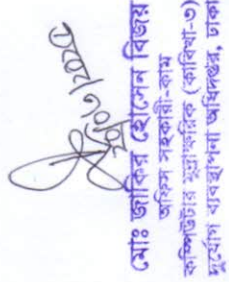 মোঃ জাকির হোসেন বিজয়
অফিস সহকারী-কাম
কম্পিউটার মুদ্রাক্ষরিক (কাবিখা-৩)
দুর্যোগ ব্যবস্থাপনা অধিদপ্তর, ঢাকা